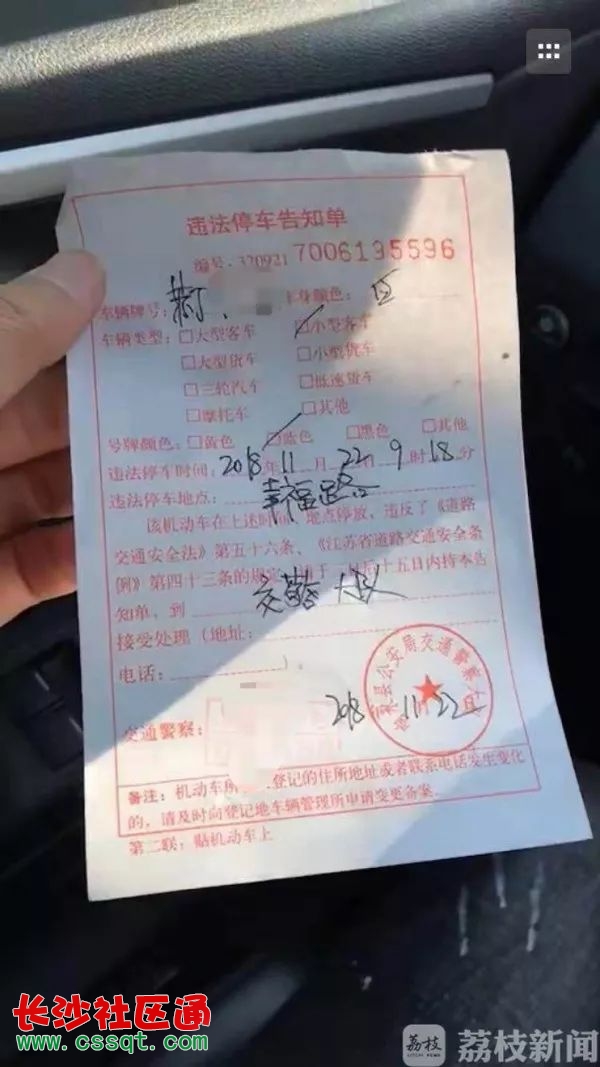 违法停车告知单
编号:370921 7006195596
车辆牌号: 车身颜色:
车辆类型: □大型客车 □小型客车
□大型货车 □小型货车
□三轮汽车 □低速货车
□摩托车 □其他
号牌颜色: □黄色 □蓝色 □黑色 □其他
违法停车时间: 2018年11月22日9时18分
违法停车地点: 幸福路
该机动车在上述时间、地点停放,违反了《道路
交通安全法》第五十六条、《江苏省道路交通安全条
例》第四十三条的规定,请于 日后十五日内持本告
知单,到 交警大队
接受处理(地址:
电话: )。
交通警察:
县公安局交通警察大队
2018 11 22
备注: 机动车所 登记的住所地址或者联系电话发生变化
的,请及时向登记地车辆管理所申请变更备案。
第二联: 贴机动车上
长沙社区通
www.cssqt.com
荔枝
荔枝新闻